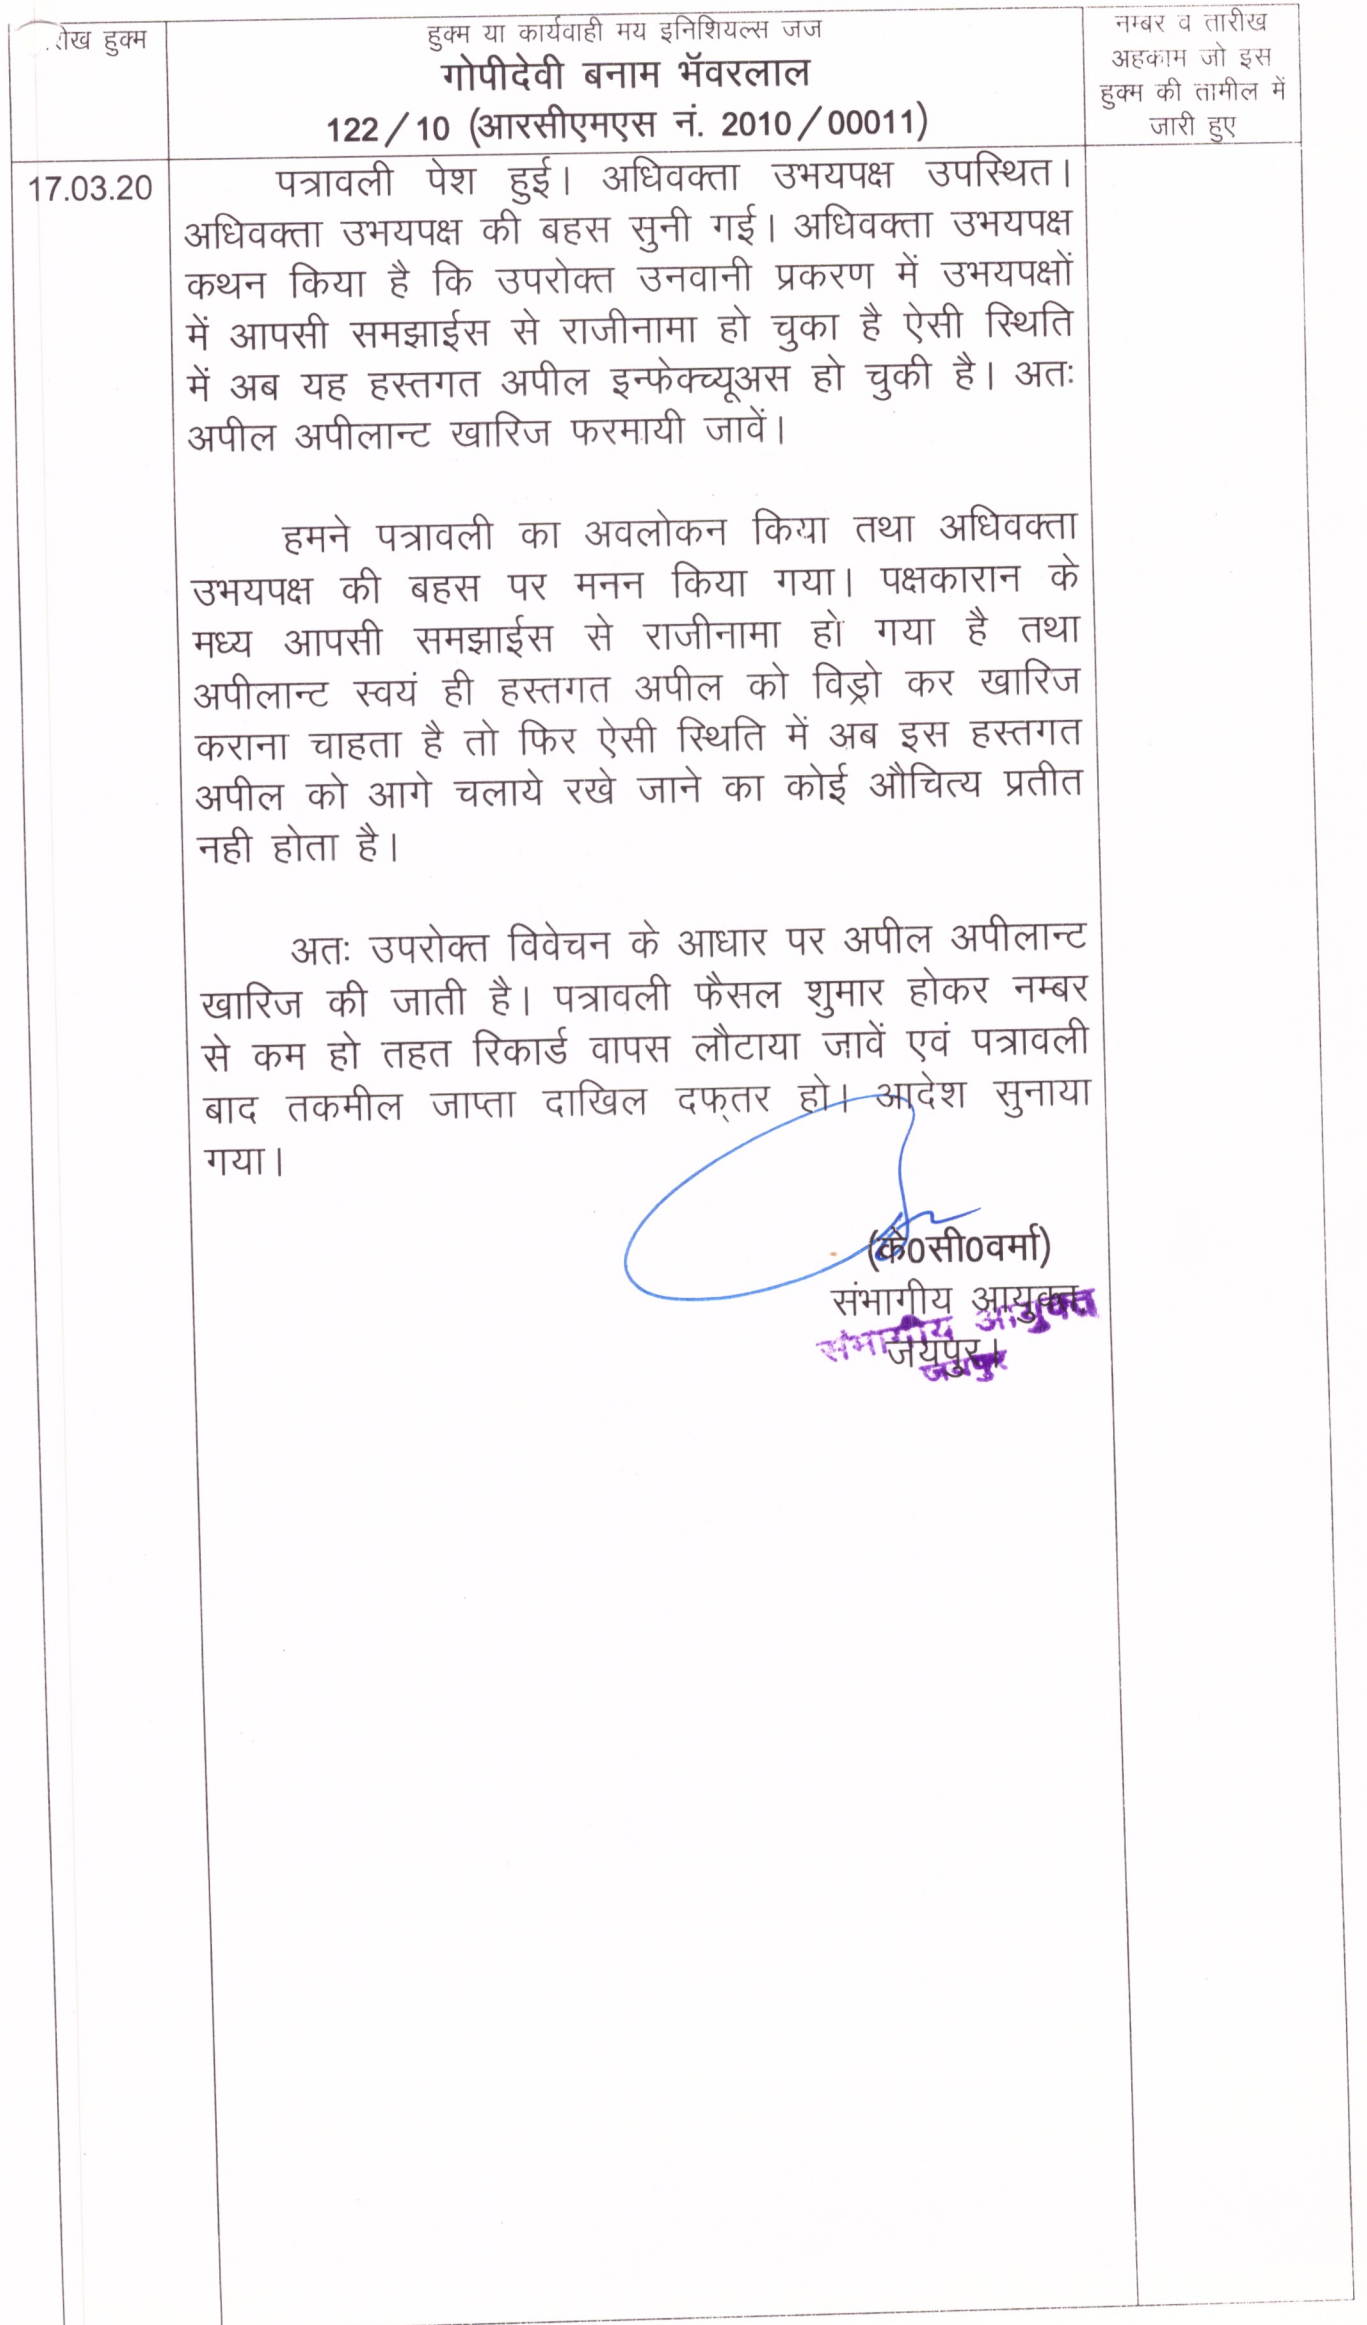 हुक्म
हुक्म या कार्यवाही मय इनिशियल्स जज
गोपीदेवी बनाम भॅवरलाल
122/10 (आरसीएमएस नं. 2010/00011)
नम्बर व तारीख
अहकाम जो इस
हुक्म की तामील में
जारी हुए
17.03.20
पत्रावली पेश हुई। अधिवक्ता उभयपक्ष उपस्थित।
अधिवक्ता उभयपक्ष की बहस सुनी गई। अधिवक्ता उभयपक्ष
कथन किया है कि उपरोक्त उनवानी प्रकरण में उभयपक्षों
में आपसी समझाईस से राजीनामा हो चुका है ऐसी स्थिति
में अब यह हस्तगत अपील इन्फेक्च्यूअस हो चुकी है। अतः
अपील अपीलान्ट खारिज फरमायी जावें।
हमने पत्रावली का अवलोकन किया तथा अधिवक्ता
उभयपक्ष की बहस पर मनन किया गया। पक्षकारान के
मध्य आपसी समझाईस से राजीनामा हो गया है तथा
अपीलान्ट स्वयं ही हस्तगत अपील को विड्रो कर खारिज
कराना चाहता है तो फिर ऐसी स्थिति में अब इस हस्तगत
अपील को आगे चलाये रखे जाने का कोई औचित्य प्रतीत
नही होता है।
अतः उपरोक्त विवेचन के आधार पर अपील अपीलान्ट
खारिज की जाती है। पत्रावली फैसल शुमार होकर नम्बर
से कम हो तहत रिकार्ड वापस लौटाया जावें एवं पत्रावली
बाद तकमील जाप्ता दाखिल दफ्तर हो। आदेश सुनाया
गया।
(के0सी0वर्मा)
संभागीय आयुक्त
संभागीय आयुक्त
जयपुर।
जयपुर